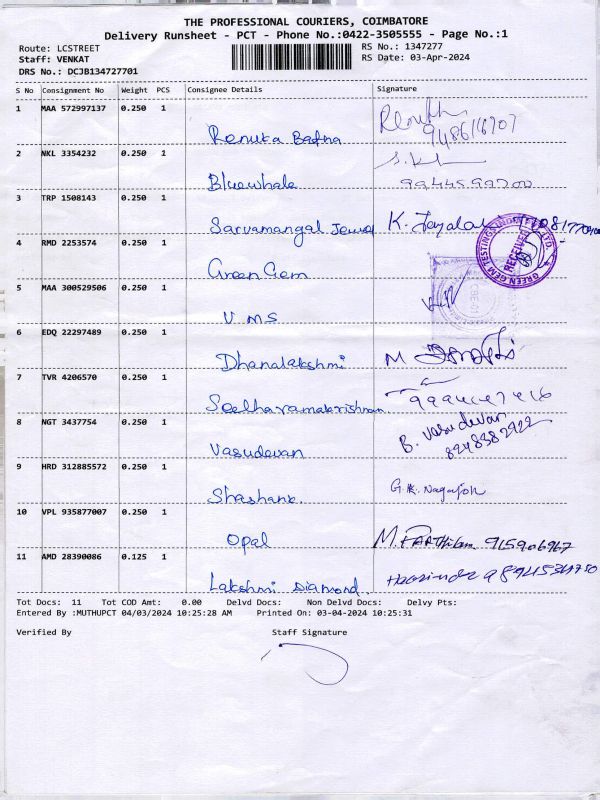 THE PROFESSIONAL COURIERS, COIMBATORE
Delivery Runsheet - PCT - Phone No.:0422-3505555 - Page No.:1
Route: LCSTREET
RS No.: 1347277
Staff: VENKAT
RS Date: 03-Apr-2024
DRS No.: DCJB134727701
S No Consignment No Weight PCS Consignee Details Signature
1 MAA 572997137 0.250 1
Renuka Bafna
2 NKL 3354232 0.250 1
Bluewhale
3 TRP 1508143 0.250 1
Sarvamangal Jewel K. Jayala
4 RMD 2253574 0.250 1
Green Gem
GREEN GEM TESTINGS RECEIVED
5 MAA 300529506 0.250 1
VMS
6 EDQ 22297489 0.250 1
Dhanalakshmi M
7 TVR 4206570 0.250 1
Seetharamakrishnan
8 NGT 3437754 0.250 1
B. Vasudevan
Vasudevan 8248382922
9 HRD 312885572 0.250 1
Shashank
10 VPL 935877007 0.250 1
Opal
11 AMD 28390086 0.125 1
Lakshmi Diamond
Tot Docs: 11 Tot COD Amt: 0.00 Delvd Docs: Non Delvd Docs: Delvy Pts:
Entered By :MUTHUPCT 04/03/2024 10:25:28 AM Printed On: 03-04-2024 10:25:31
Verified By Staff Signature